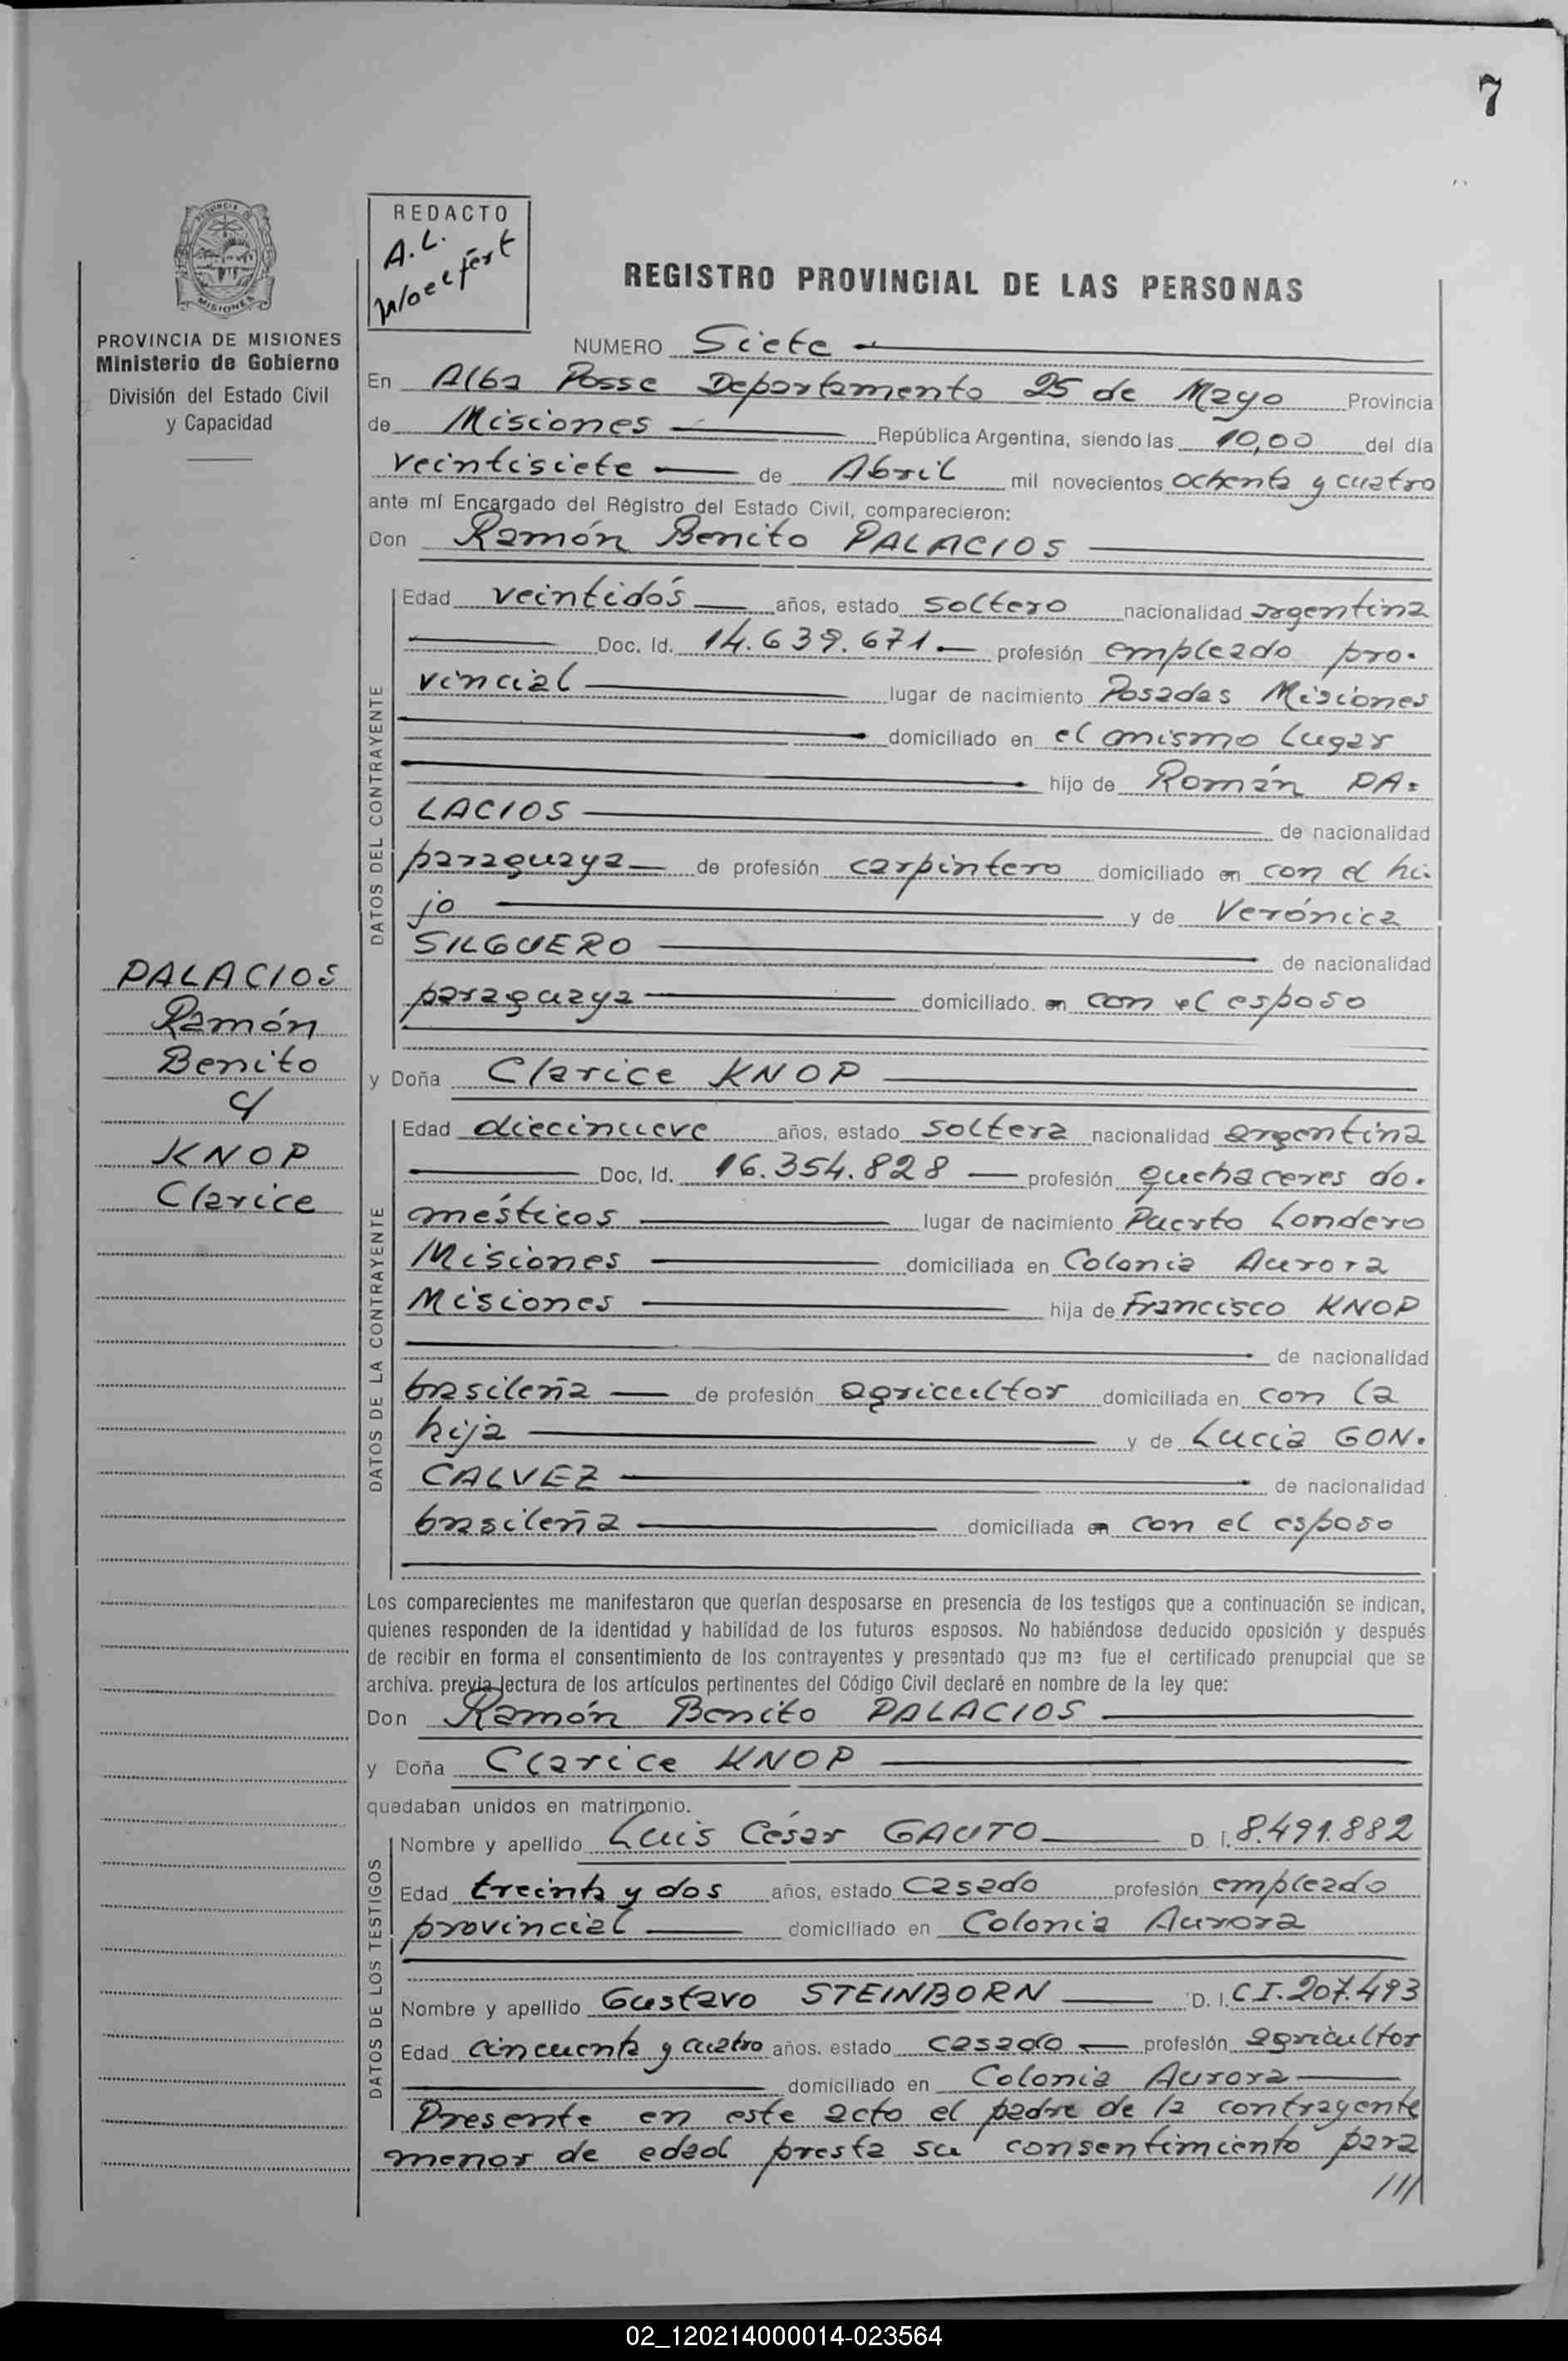 7
REDACTO
A. L.
Woelfert
PROVINCIA DE MISIONES
Ministerio de Gobierno
División del Estado Civil
y Capacidad
REGISTRO PROVINCIAL DE LAS PERSONAS
NUMERO Siete
En Alba Posse Departamento 25 de Mayo Provincia
de Misiones República Argentina, siendo las 10,00 del día
veintisiete de Abril mil novecientos ochenta y cuatro
ante mí Encargado del Registro del Estado Civil, comparecieron:
Don Ramón Benito PALACIOS
DATOS DEL CONTRAYENTE
Edad veintidós años, estado soltero nacionalidad argentina
Doc. Id. 14.639.671.- profesión empleado pro-
vincial lugar de nacimiento Posadas Misiones
domiciliado en el mismo lugar
hijo de Román PA=
LACIOS de nacionalidad
paraguaya de profesión carpintero domiciliado en con el hi-
jo y de Verónica
SILGUERO de nacionalidad
paraguaya domiciliado en con el esposo
PALACIOS
Ramón
Benito
c/
KNOP
Clarice
y Doña Clarice KNOP
DATOS DE LA CONTRAYENTE
Edad diecinueve años, estado soltera nacionalidad argentina
Doc, Id. 16.354.828 profesión quehaceres do-
mésticos lugar de nacimiento Puerto Londero
Misiones domiciliada en Colonia Aurora
Misiones hija de Francisco KNOP
de nacionalidad
brasileña de profesión agricultor domiciliada en con la
hija y de Lucia GON-
CALVEZ de nacionalidad
brasileña domiciliada en con el esposo
Los comparecientes me manifestaron que querían desposarse en presencia de los testigos que a continuación se indican,
quienes responden de la identidad y habilidad de los futuros esposos. No habiéndose deducido oposición y después
de recibir en forma el consentimiento de los contrayentes y presentado que me fue el certificado prenupcial que se
archiva. previa lectura de los artículos pertinentes del Código Civil declaré en nombre de la ley que:
Don Ramón Benito PALACIOS
y Doña Clarice KNOP
quedaban unidos en matrimonio.
DATOS DE LOS TESTIGOS
Nombre y apellido Luis César GAUTO D. I. 8.491.882
Edad treinta y dos años, estado casado profesión empleado
provincial domiciliado en Colonia Aurora
Nombre y apellido Gustavo STEINBORN D. I. C.I. 207.493
Edad cincuenta y cuatro años. estado casado profesión agricultor
domiciliado en Colonia Aurora
Presente en este acto el padre de la contrayente
menor de edad presta su consentimiento para
///
02_120214000014-023564